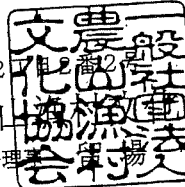 一般社団法人
農山漁村
文化協会
理事